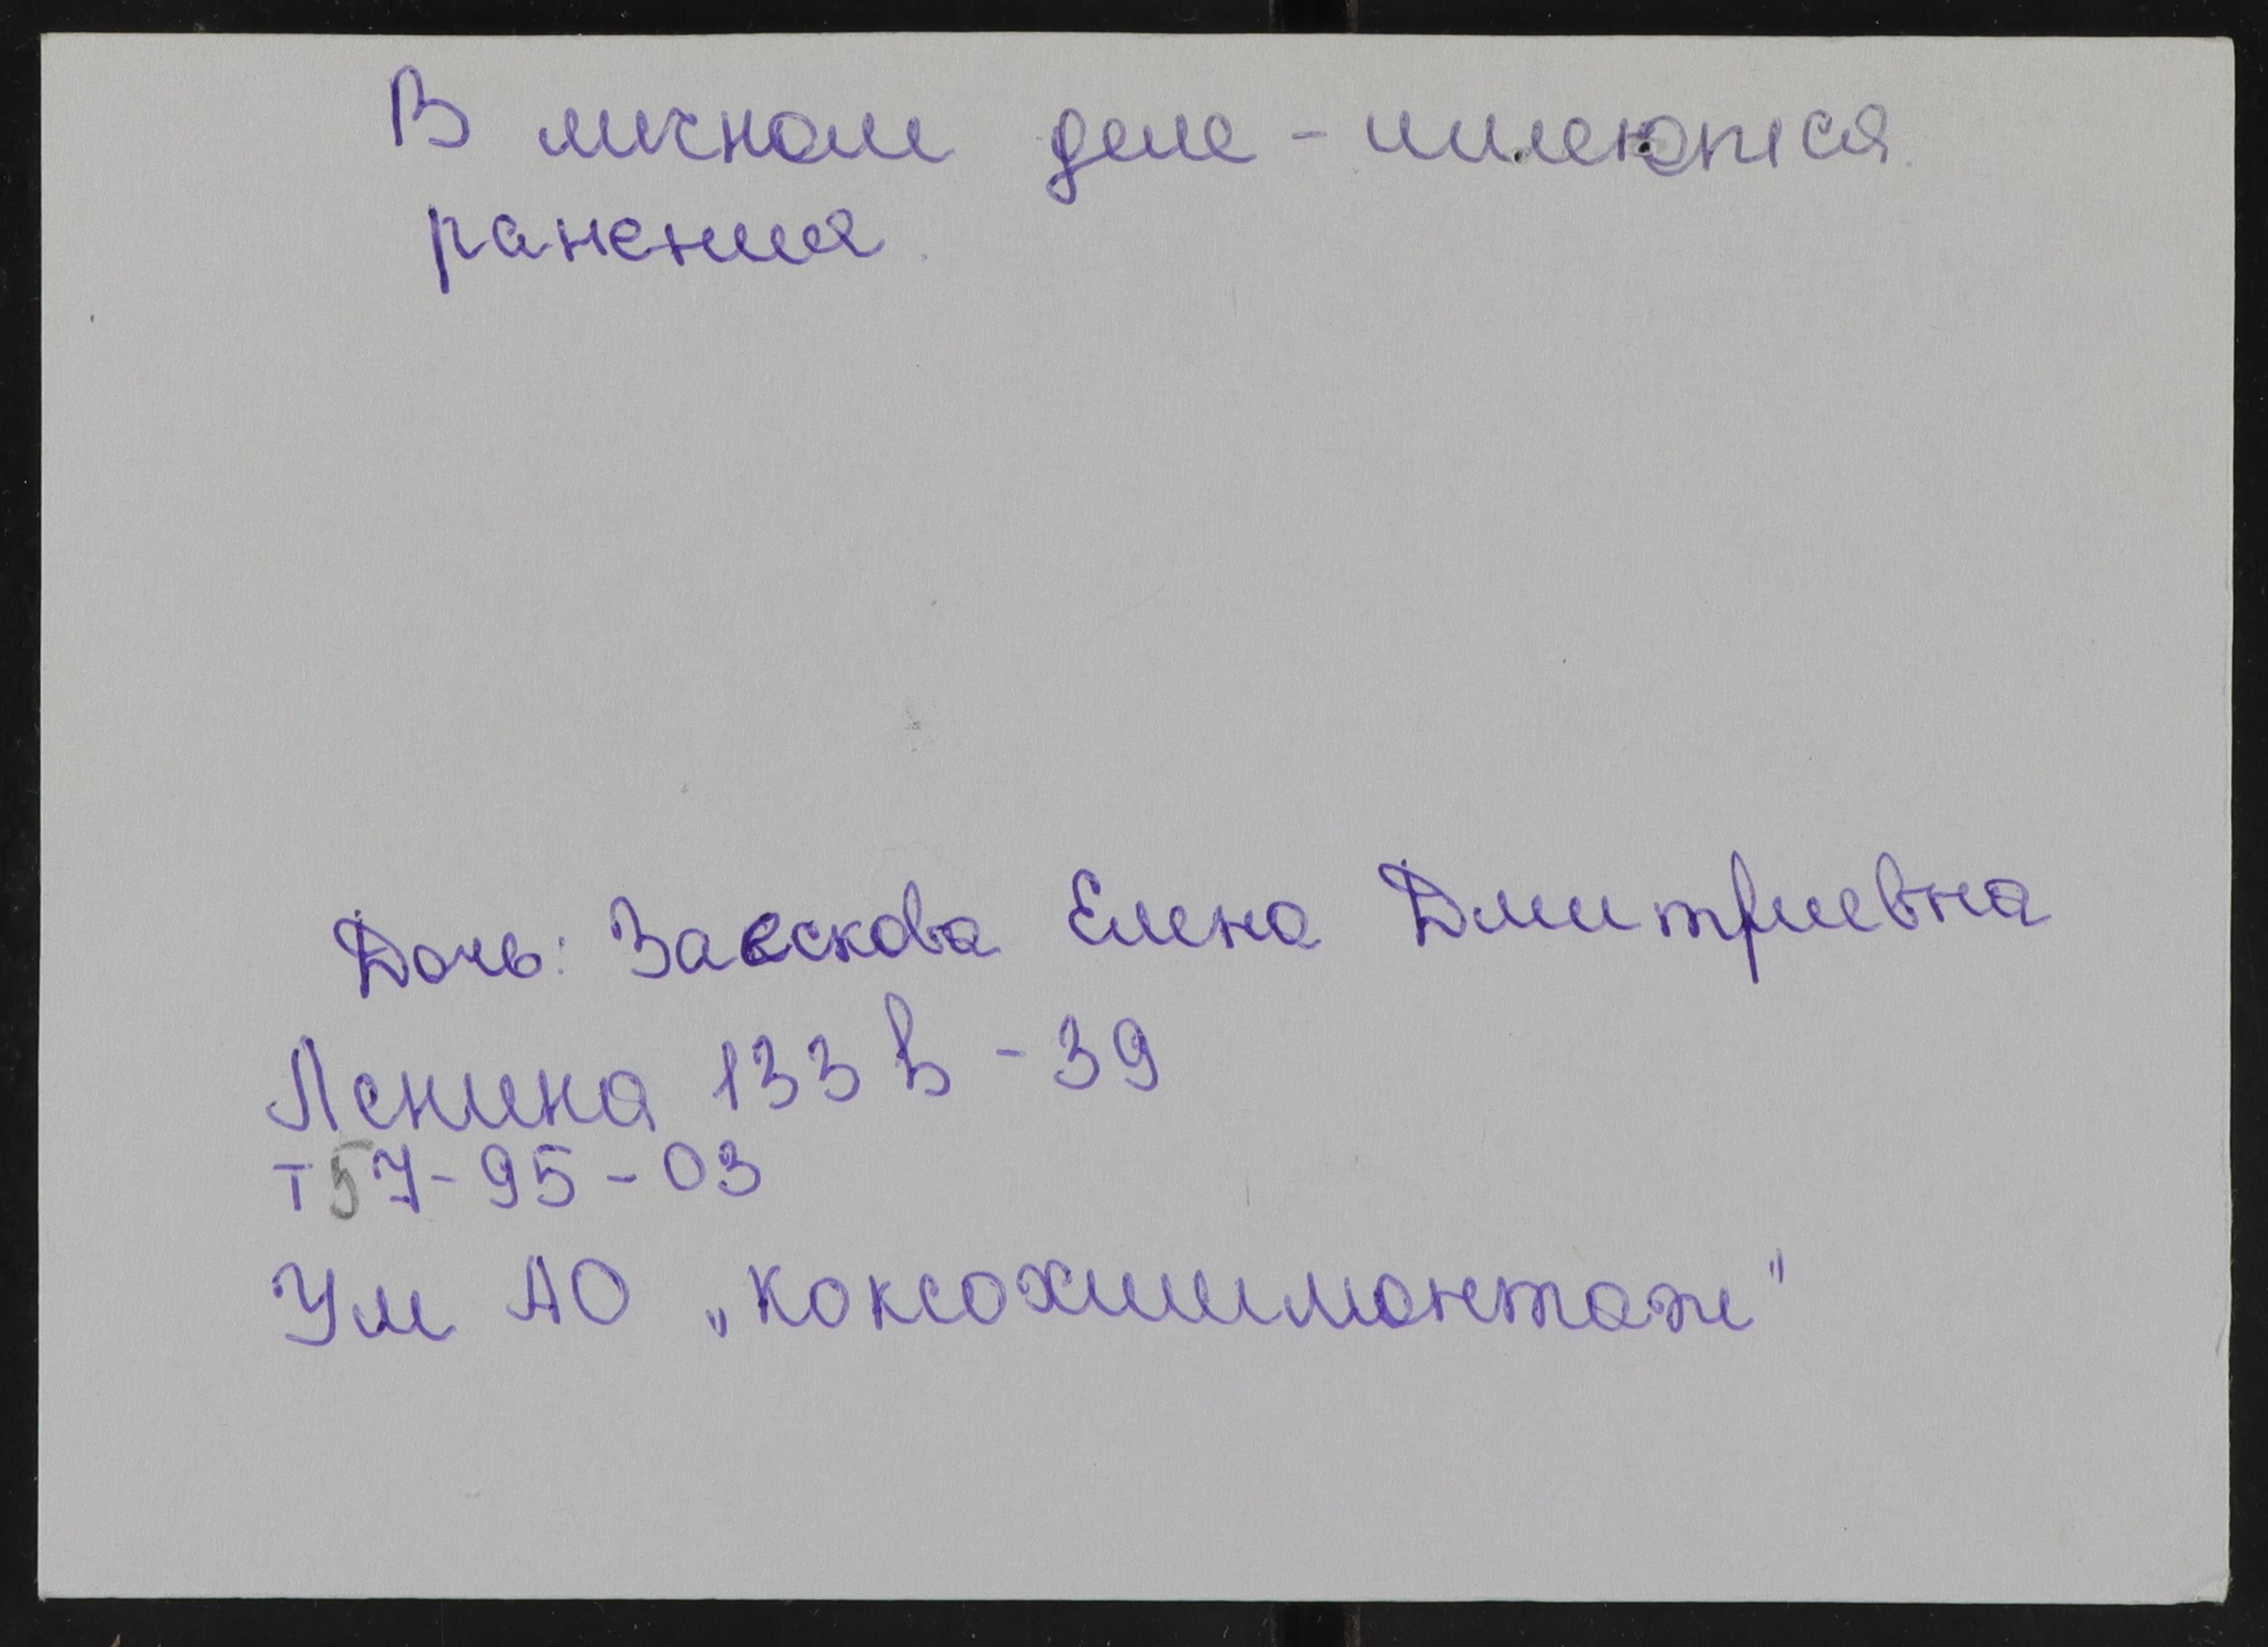 В личном деле - имеются
ранения.
Дочь: Заескова Елена Дмитриевна
Ленина 133 в - 39
т 57-95-03
Ум АО "Коксохиммонтаж"